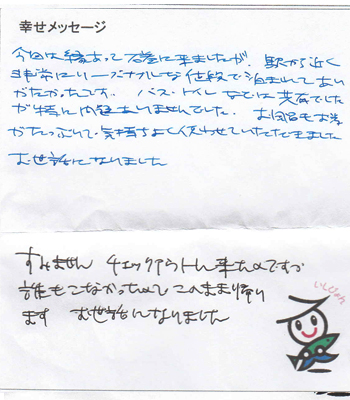 幸せメッセージ
今回は縁あって石垣に来ましたが、駅から近く
非常にリーズナブルな値段で泊まれてあり
がたかったです。バス・トイレなどは共有でした
が特に問題ありませんでした。お風呂もお湯
がたっぷりで気持ちよく使わせていただきました
お世話になりました
すみません チェックアウトしに来たのですが
誰もこなかったので このまま帰り
ます お世話になりました